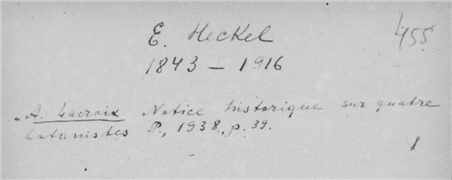 E. Heckel
455
1843 – 1916
A. Lacroix Notice historique sur quatre
botanistes P., 1938, p. 39.